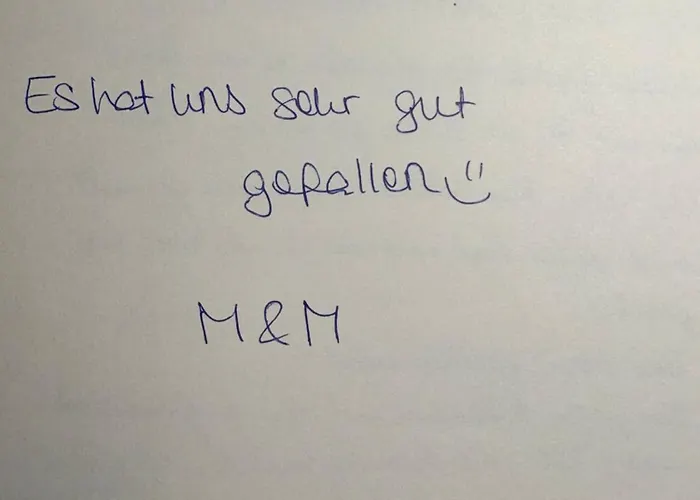 Es hat uns sehr gut
gefallen :)
M & M